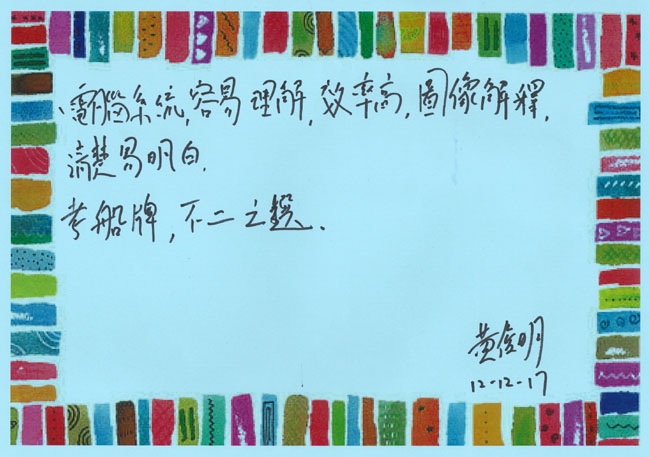 電腦系統,容易理解,效率高,圖像解釋,
清楚易明白.
考船牌,不二之選.
黃俊明
12-12-17